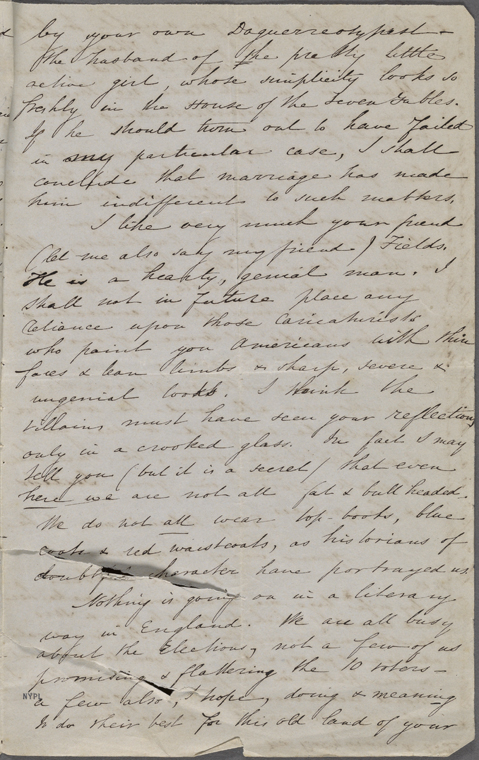 by your own Daguerreotypist –
the husband of the pretty little
active girl, whose simplicity looks so
freshly in the House of the Seven Gables.
If he should turn out to have failed
in my particular case, I shall
conclude that marriage has made
him indifferent to such matters.
I like very much your friend
(let me also say my friend) Fields.
He is a hearty, genial man. I
shall not in future place any
reliance upon those Caricaturists
who paint you Americans with thin
faces & lean limbs & sharp, severe &
ungenial looks. I think the
villains must have seen your reflections
only in a crooked glass. In fact I may
tell you (but it is a secret) that even
here we are not all fat & bull headed.
We do not all wear top-boots, blue
coats & red waistcoats, as historians of
doubtful character have portrayed us.
Nothing is going on in a literary
way in England. We are all busy
about the Elections, not a few of us
promising & flattering the 10 voters –
a few also, I hope, doing & meaning
to do their best for this old land of your
NYPL